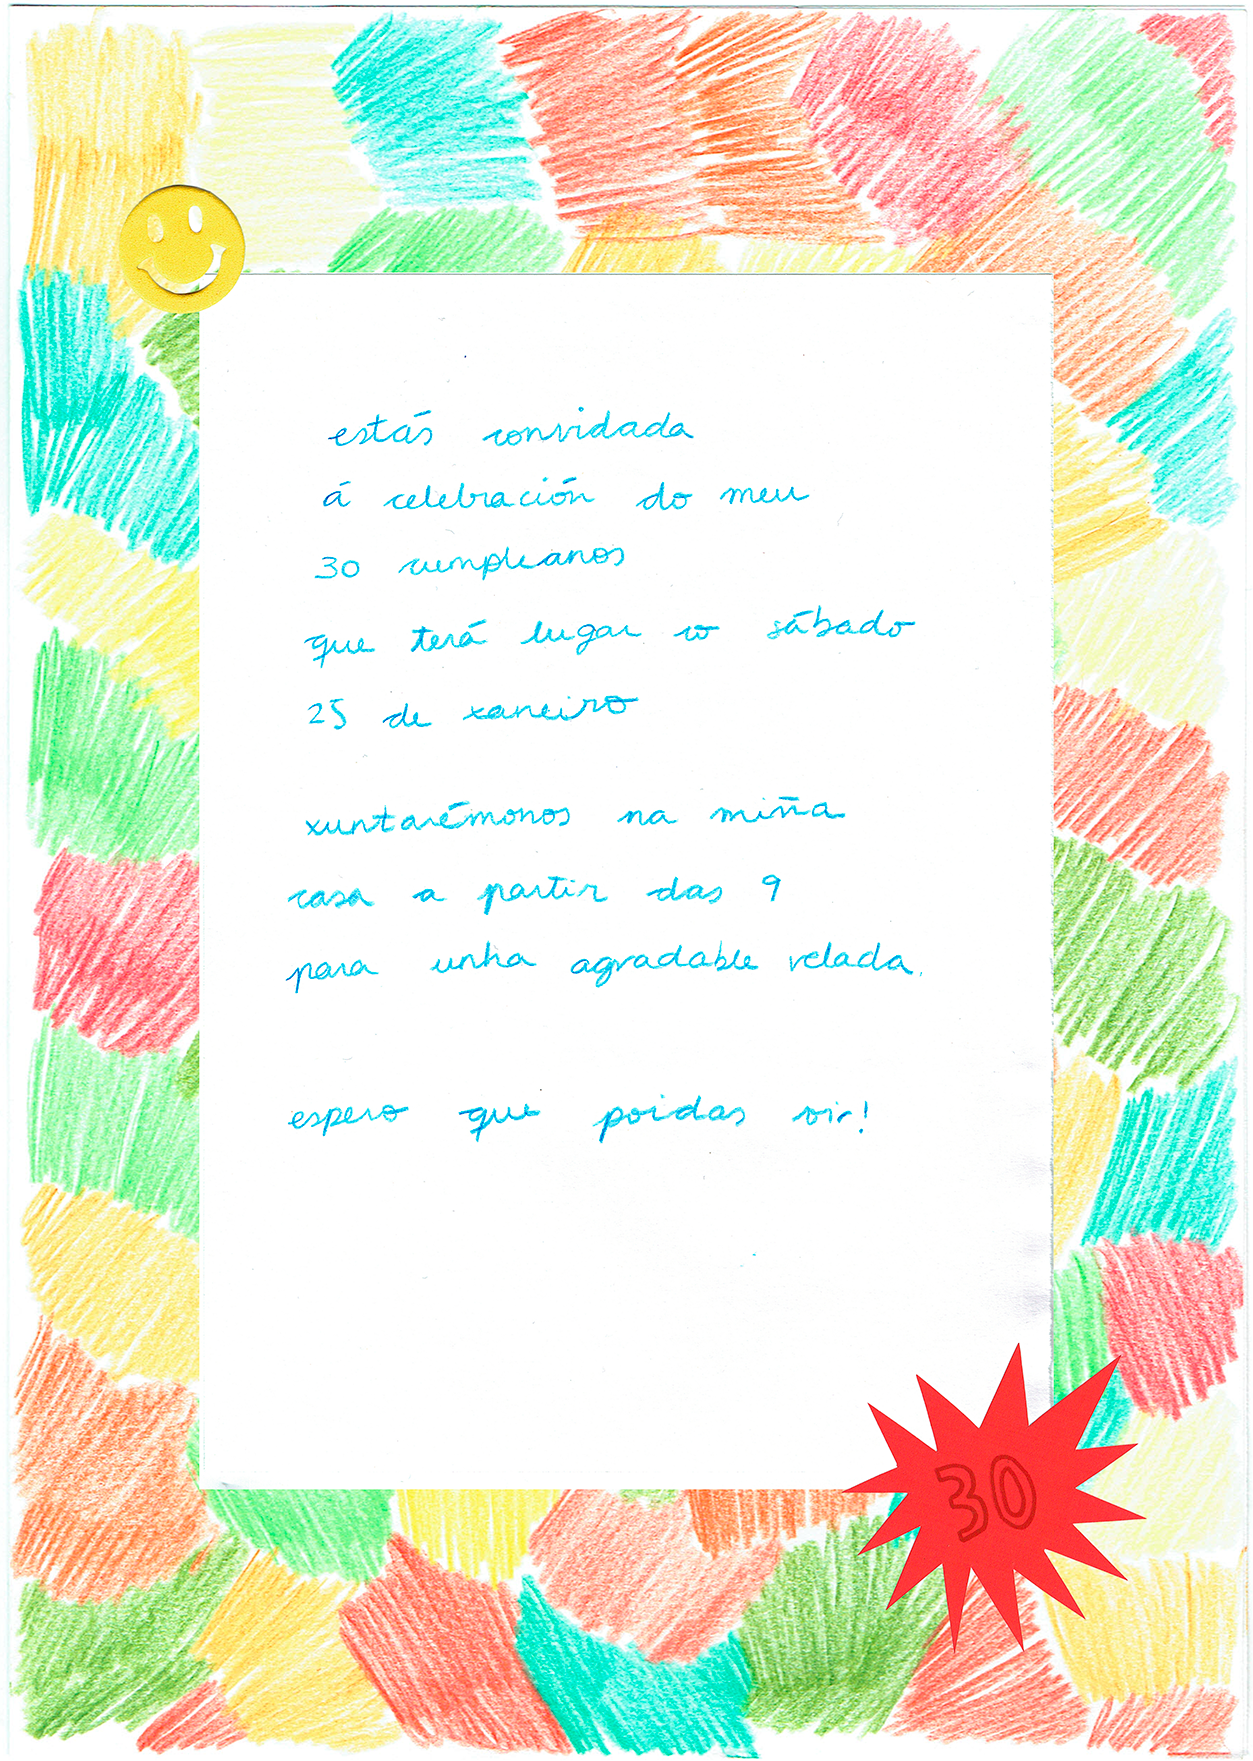 estás convidada
á celebración do meu
30 cumpleanos
que terá lugar o sábado
25 de xaneiro
xuntarémonos na miña
casa a partir das 9
para unha agradable velada.
espero que poidas vir!
30